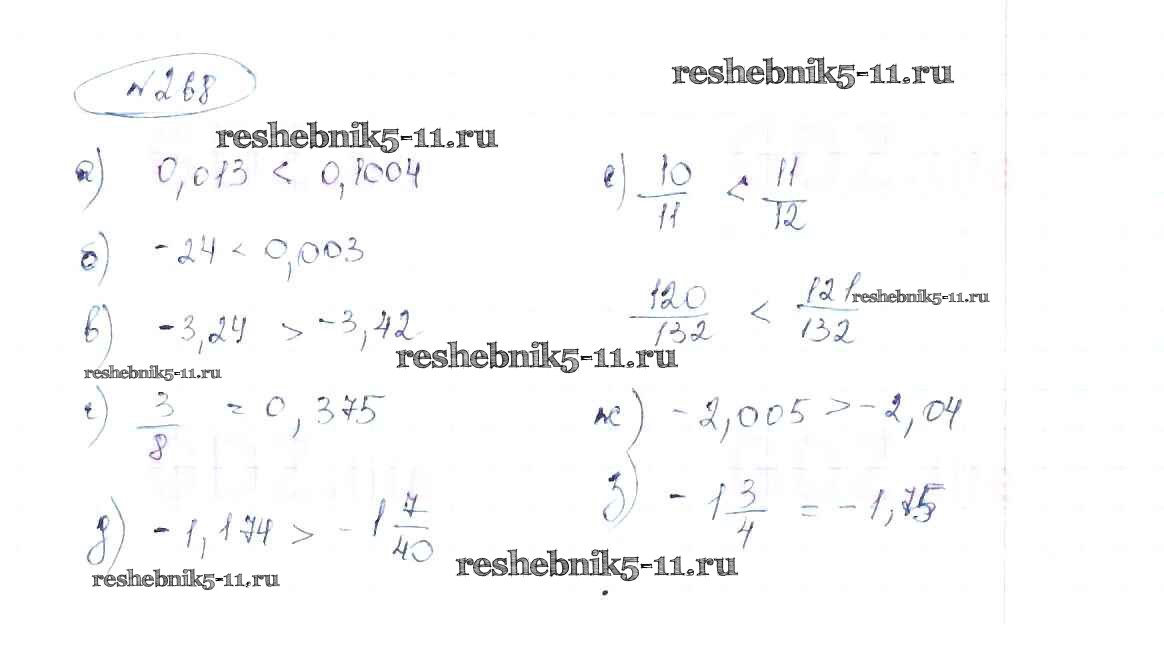 №268
reshebnik5-11.ru
reshebnik5-11.ru
а) 0,013 < 0,1004
б) -24 < 0,003
в) -3,24 > -3,42
reshebnik5-11.ru
reshebnik5-11.ru
г) 3/8 = 0,375
д) -1,174 > -1 7/40
reshebnik5-11.ru
reshebnik5-11.ru
е) 10/11 < 11/12
120/132 < 121/132
reshebnik5-11.ru
ж) -2,005 > -2,04
з) -1 3/4 = -1,75